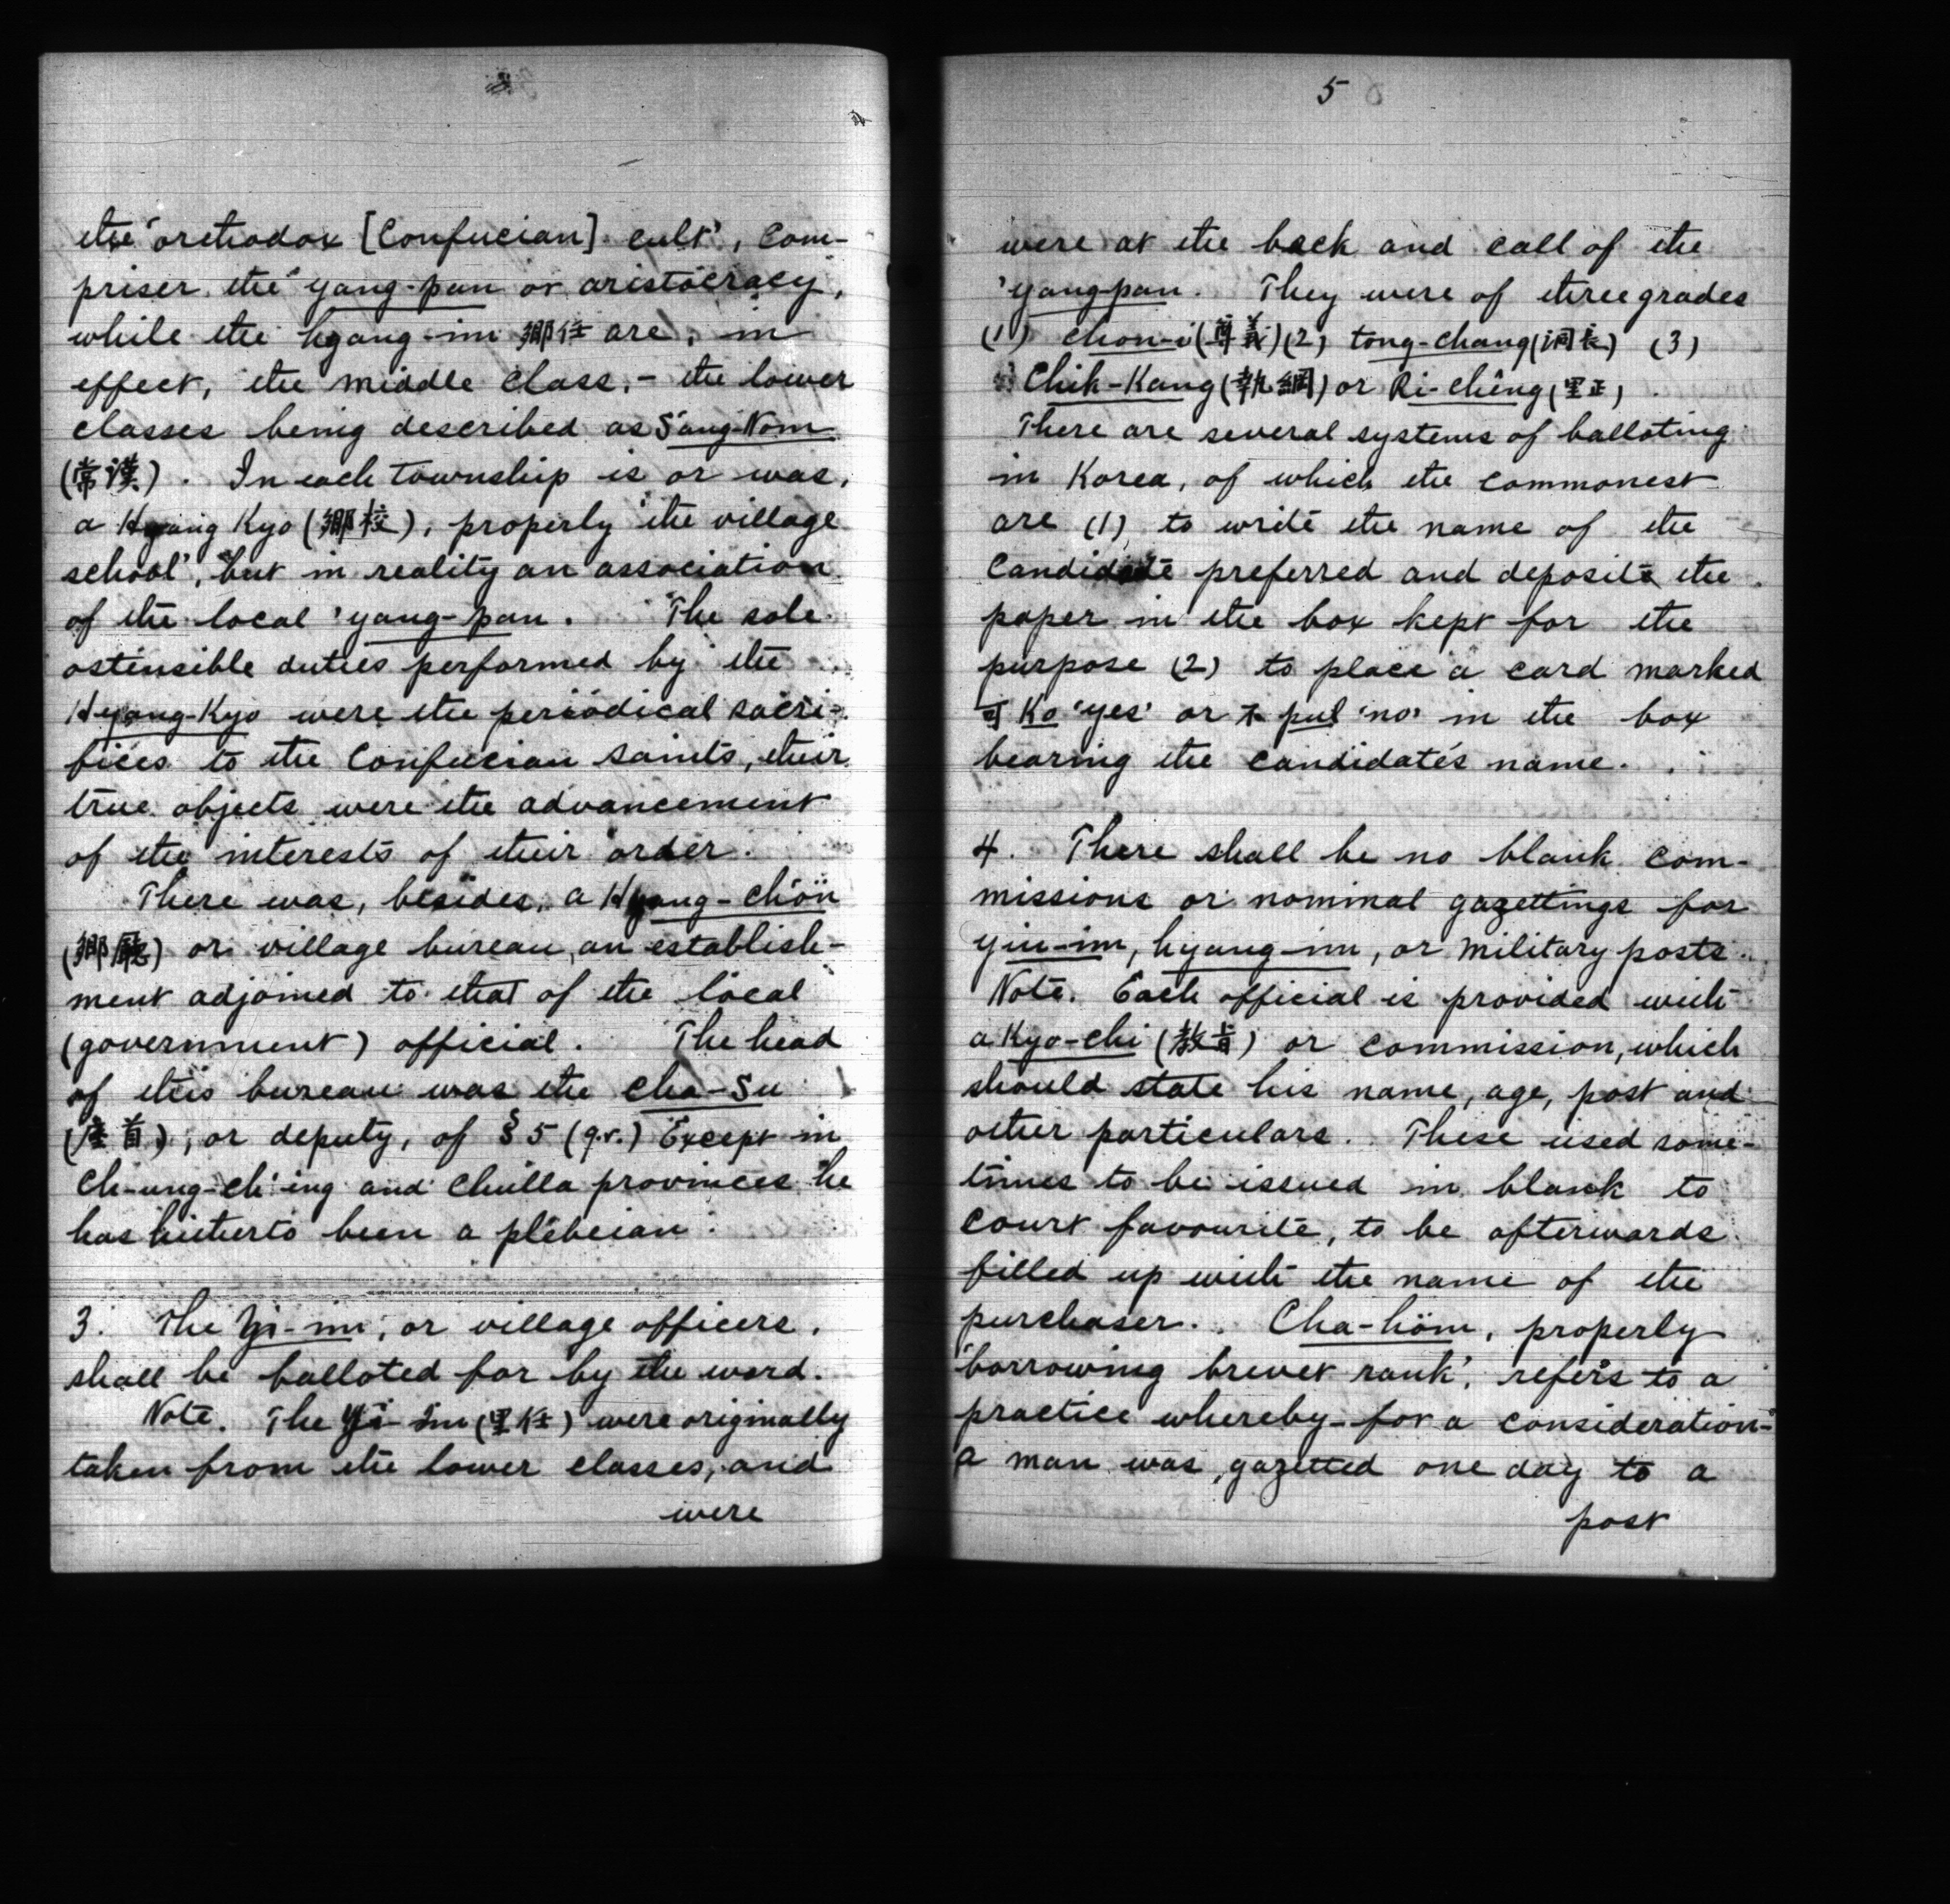 the 'orthodox [Confucian] cult', com-
prises the 'yang-pan or aristocracy,
while the hyang-im 鄕任 are, in
effect, the middle class,- the lower
classes being described as Sang Nom
(常漢). In each township is or was,
a Hyang Kyo (鄕校), properly 'the village
school', but in reality an association
of the local 'yang-pan. The sole
ostensible duties performed by the
Hyang-Kyo were the periodical sacri-
fices to the Confucian saints, their
true objects were the advancement
of the interests of their order.
There was, besides, a Hyang-chŏn
(鄕廳) or village bureau, an establish-
ment adjoined to that of the local
(government) official. The head
of this bureau was the Cha-Su
(座首), or deputy, of § 5 (q.v.) Except in
Ch-ung-ch'ing and Chulla provinces he
has hitherto been a plebeian.
3. The Yi-im, or village officers,
shall be balloted for by the ward.
Note. The Yi-Im (里任) were originally
taken from the lower classes, and
were
5
were at the back and call of the
'yangpan. They were of three grades
(1) chon-i (尊義) (2) tong-chang (洞長) (3)
Chik-Kang (執綱) or Ri-chêng (里正)
There are several systems of balloting
in Korea, of which the commonest
are (1) to write the name of the
candidate preferred and deposite the
paper in the box kept for the
purpose (2) to place a card marked
可 Ka 'yes' or 不 pul 'no' in the box
bearing the candidate's name.
4. There shall be no blank com-
missions or nominal gazettings for
yiu-im, hyang-im, or military posts.
Note. Each official is provided with
a Kyo-chi (教旨) or commission, which
should state his name, age, post and
other particulars. These used some-
times to be issued in blank to
court favourite, to be afterwards
filled up with the name of the
purchaser. Cha-höm, properly
'borrowing brevet rank', refers to a
practice whereby - for a consideration -
a man was gazetted one day to a
post